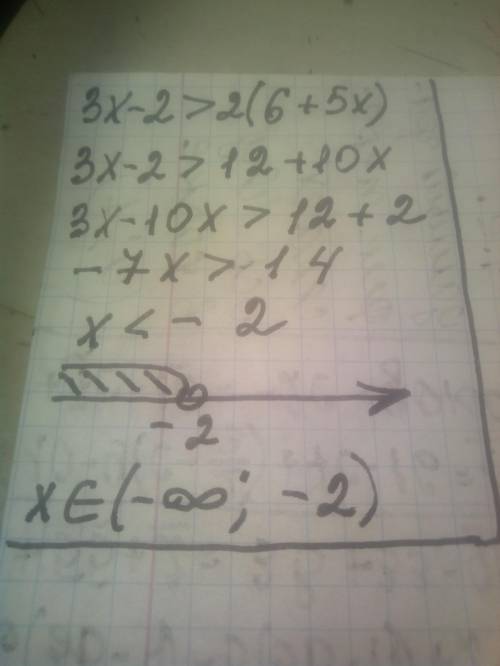 3x-2>2(6+5x)
3x-2>12+10x
3x-10x>12+2
-7x>14
x<-2
-2
x∈(-∞; -2)